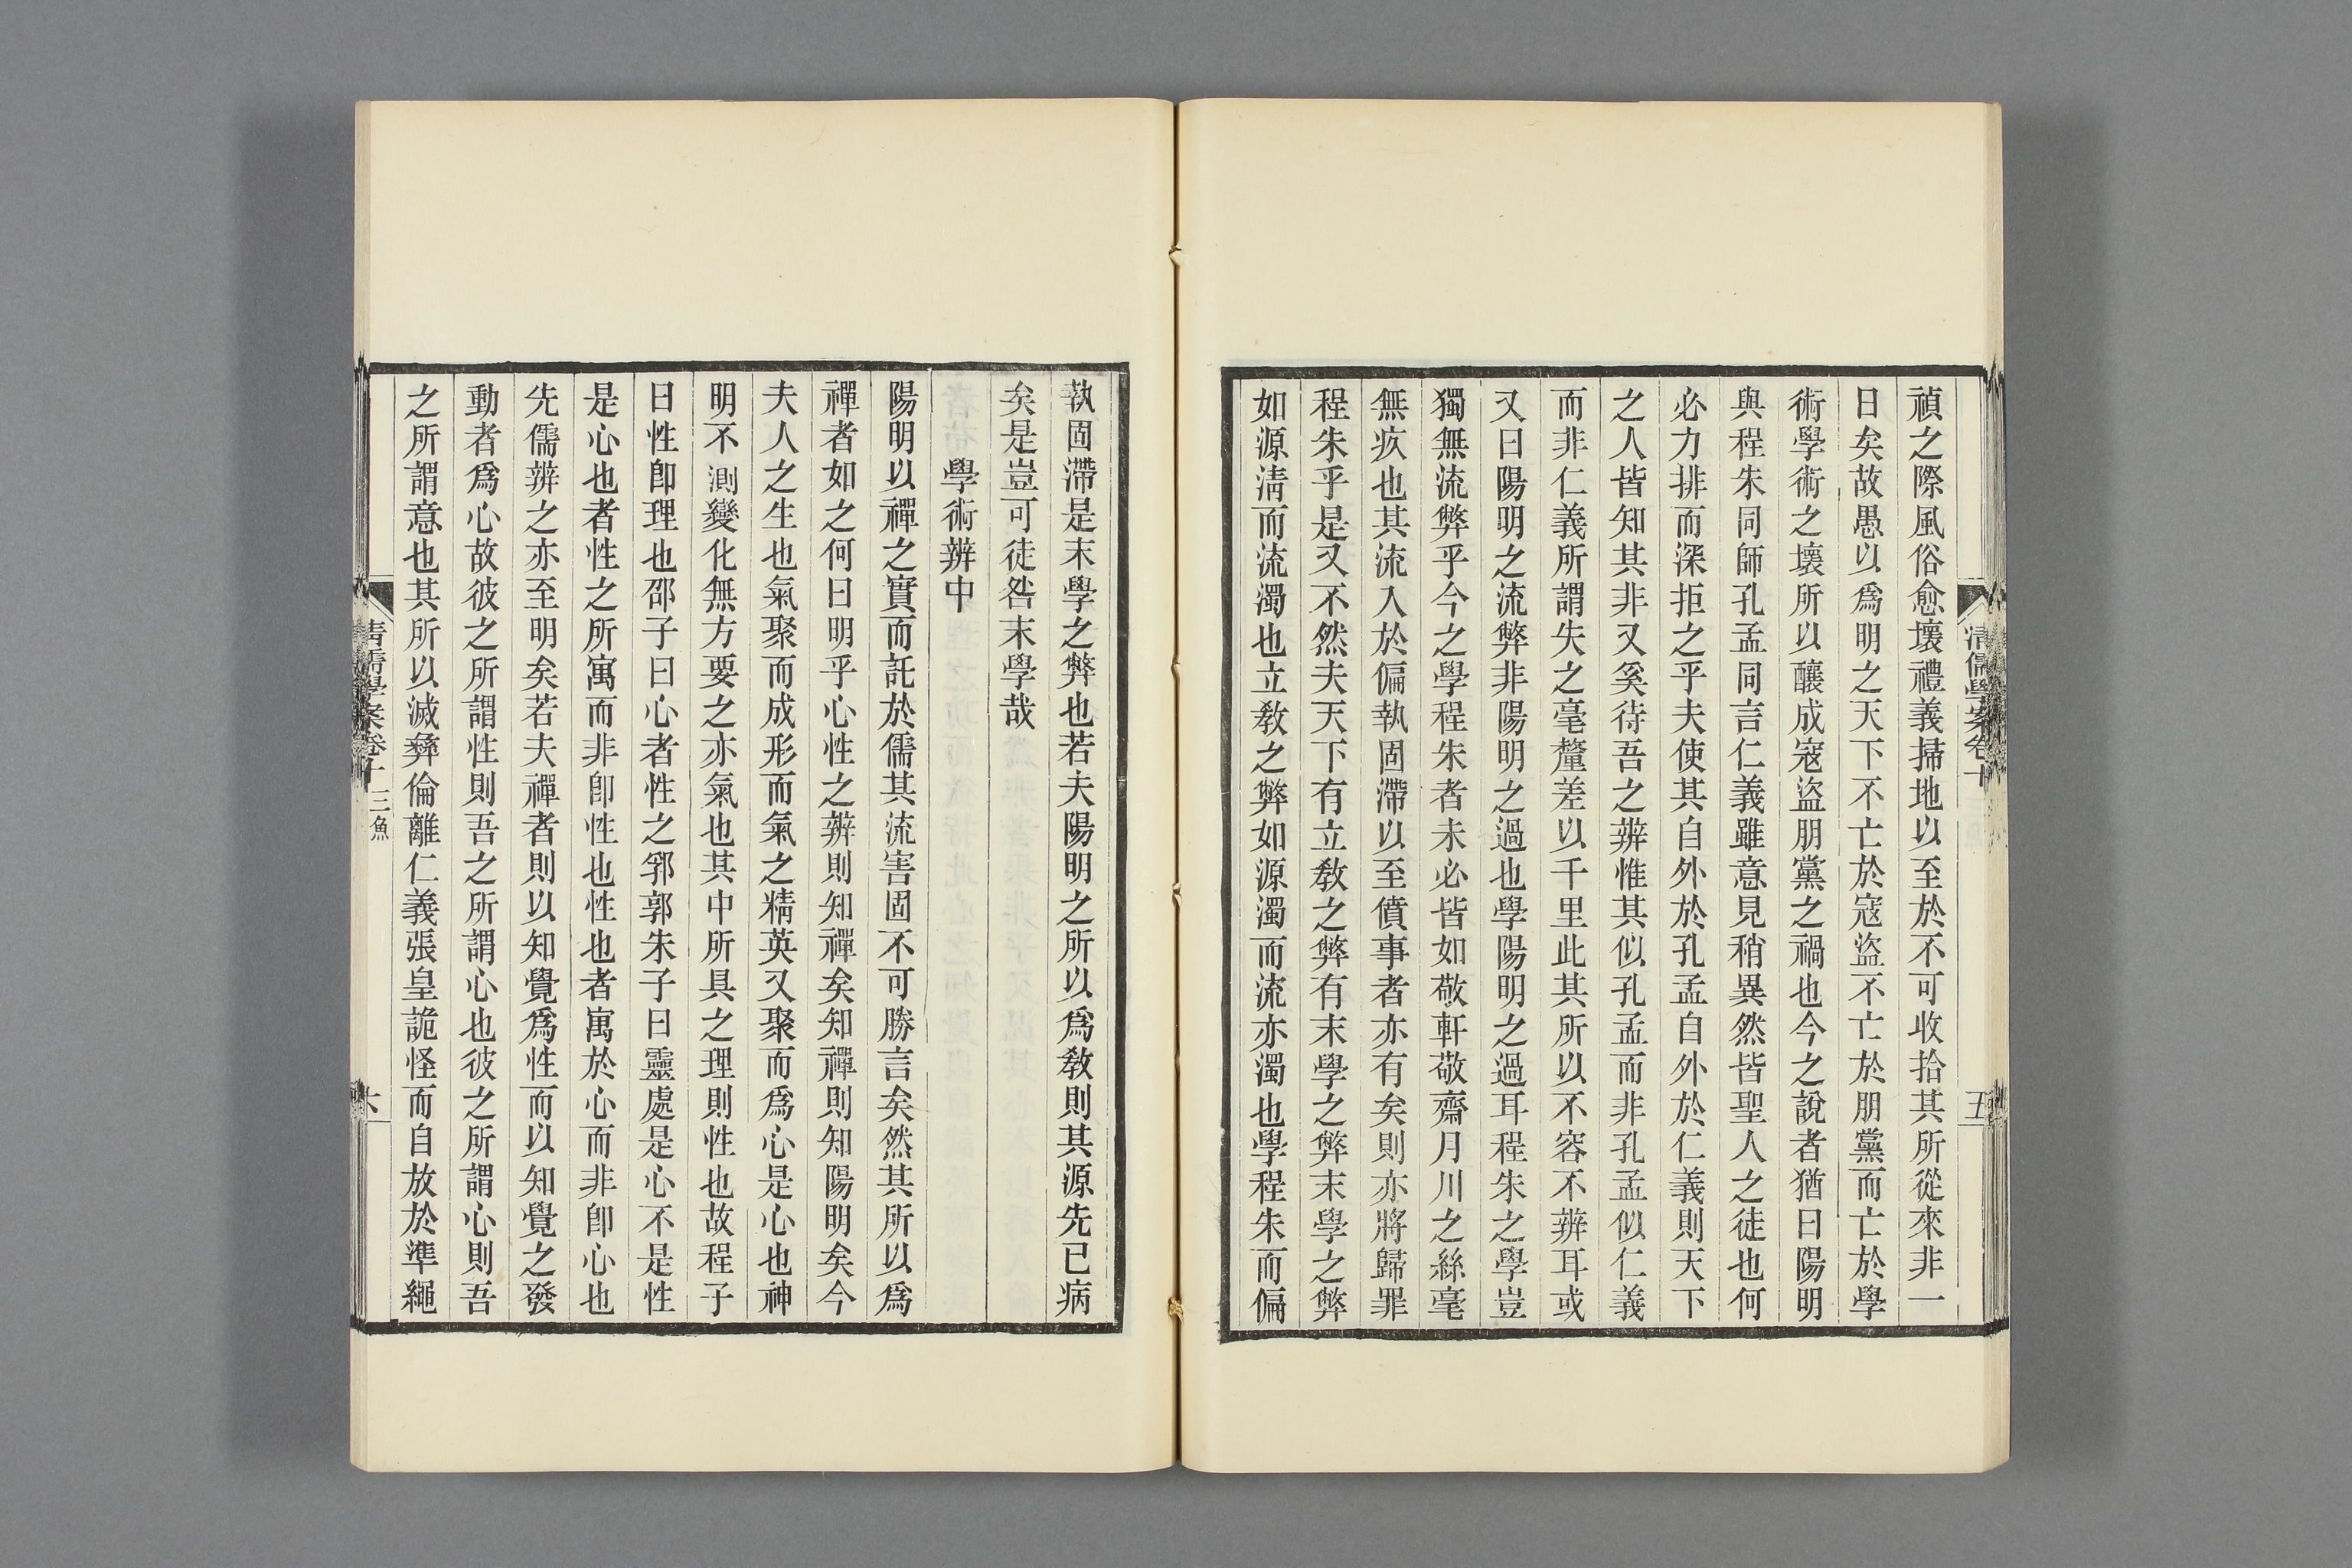 禎之際風俗愈壞禮義掃地以至於不可收拾其所從來非一
日矣故愚以爲明之天下不亡於寇盜不亡於朋黨而亡於學
術學術之壞所以釀成寇盜朋黨之禍也今之說者猶曰陽明
與程朱同師孔孟同言仁義雖意見稍異然皆聖人之徒也何
必力排而深拒之乎夫使其自外於孔孟自外於仁義則天下
之人皆知其非又奚待吾之辨惟其似孔孟而非孔孟似仁義
而非仁義所謂失之毫釐差以千里此其所以不容不辨耳或
又曰陽明之流弊非陽明之過也學陽明之過耳程朱之學豈
獨無流弊乎今之學程朱者未必皆如敬軒敬齋月川之絲毫
無疚也其流入於偏執固滯以至僨事者亦有矣則亦將歸罪
程朱乎是又不然夫天下有立敎之弊有末學之弊末學之弊
如源淸而流濁也立敎之弊如源濁而流亦濁也學程朱而偏
淸儒學案卷十
五
執固滯是末學之弊也若夫陽明之所以爲敎則其源先已病
矣是豈可徒咎末學哉
學術辨中
陽明以禪之實而託於儒其流害固不可勝言矣然其所以爲
禪者如之何曰明乎心性之辨則知禪矣知禪則知陽明矣今
夫人之生也氣聚而成形而氣之精英又聚而爲心是心也神
明不測變化無方要之亦氣也其中所具之理則性也故程子
曰性卽理也邵子曰心者性之郛郭朱子曰靈處是心不是性
是心也者性之所寓而非卽性也性也者寓於心而非卽心也
先儒辨之亦至明矣若夫禪者則以知覺爲性而以知覺之發
動者爲心故彼之所謂性則吾之所謂心也彼之所謂心則吾
之所謂意也其所以滅彝倫離仁義張皇詭怪而自放於準繩
淸儒學案卷十 三魚
六